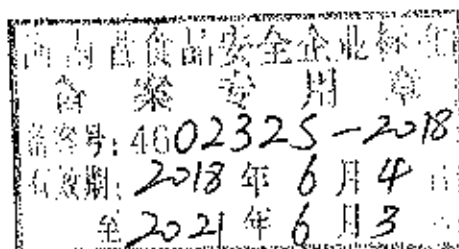 海南省食品安全企业标准
备案专用章
备案号:460232S-2018
有效期:2018年6月4日
至2021年6月3日